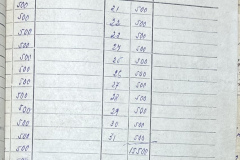 500
500 21 500
500 22 500
500 23 500
500 24 500
500 25 500
500 26 500
500 27 500
500 28 500
500 29 500
500 30 500
500 31 500
500 15500